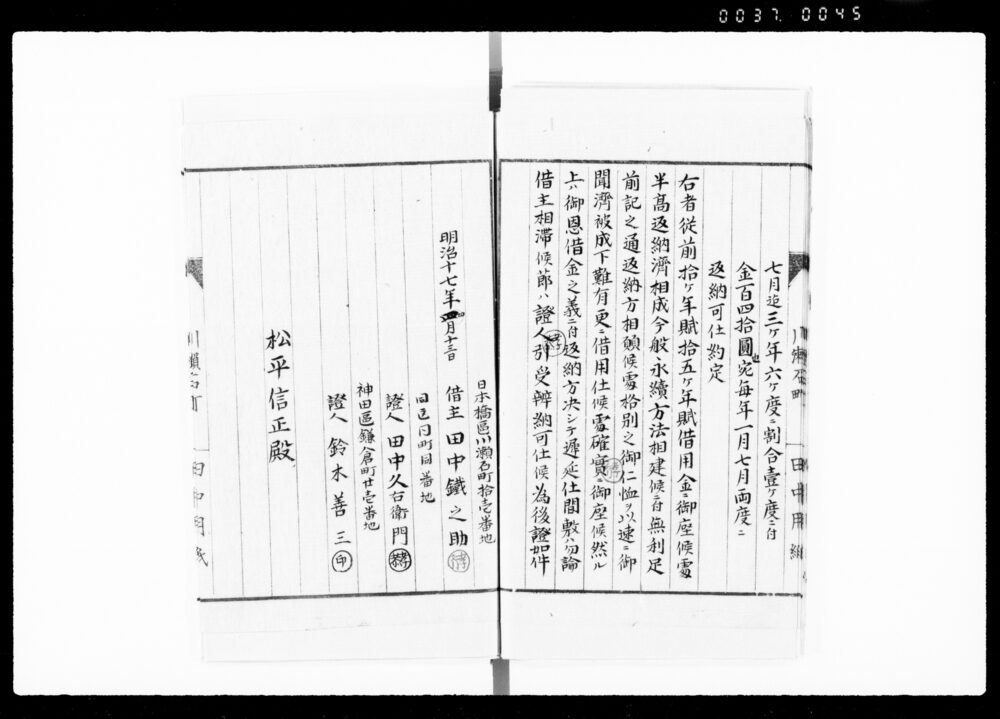 0037. 0045
七月迄三ヶ年六ヶ度ニ割合壹ヶ度ニ付
金百四拾圓宛毎年一月七月両度ニ
返納可仕約定
右者従前拾ヶ年賦拾五ヶ年賦借用金ニ御座候處
半高返納濟相成今般永續方法相建候ニ付無利足
前記之通返納方相願候處格別之御仁恤ヲ以速ニ御
聞濟被成下難有更ニ借用仕候處確實ニ御座候然ル
上ハ御恩借金之義ニ付返納方决シテ遲延仕間敷ハ勿論
借主相滞候節ハ證人引受辨納可仕候為後證如件
明治十七年四月十三日
日本橋區川瀬石町拾壱番地
借主 田中鐵之助
同區同町同番地
證人 田中久右衛門
神田區鎌倉町廿壱番地
證人 鈴木善三 印
松平信正殿
川瀬石町 田中用紙